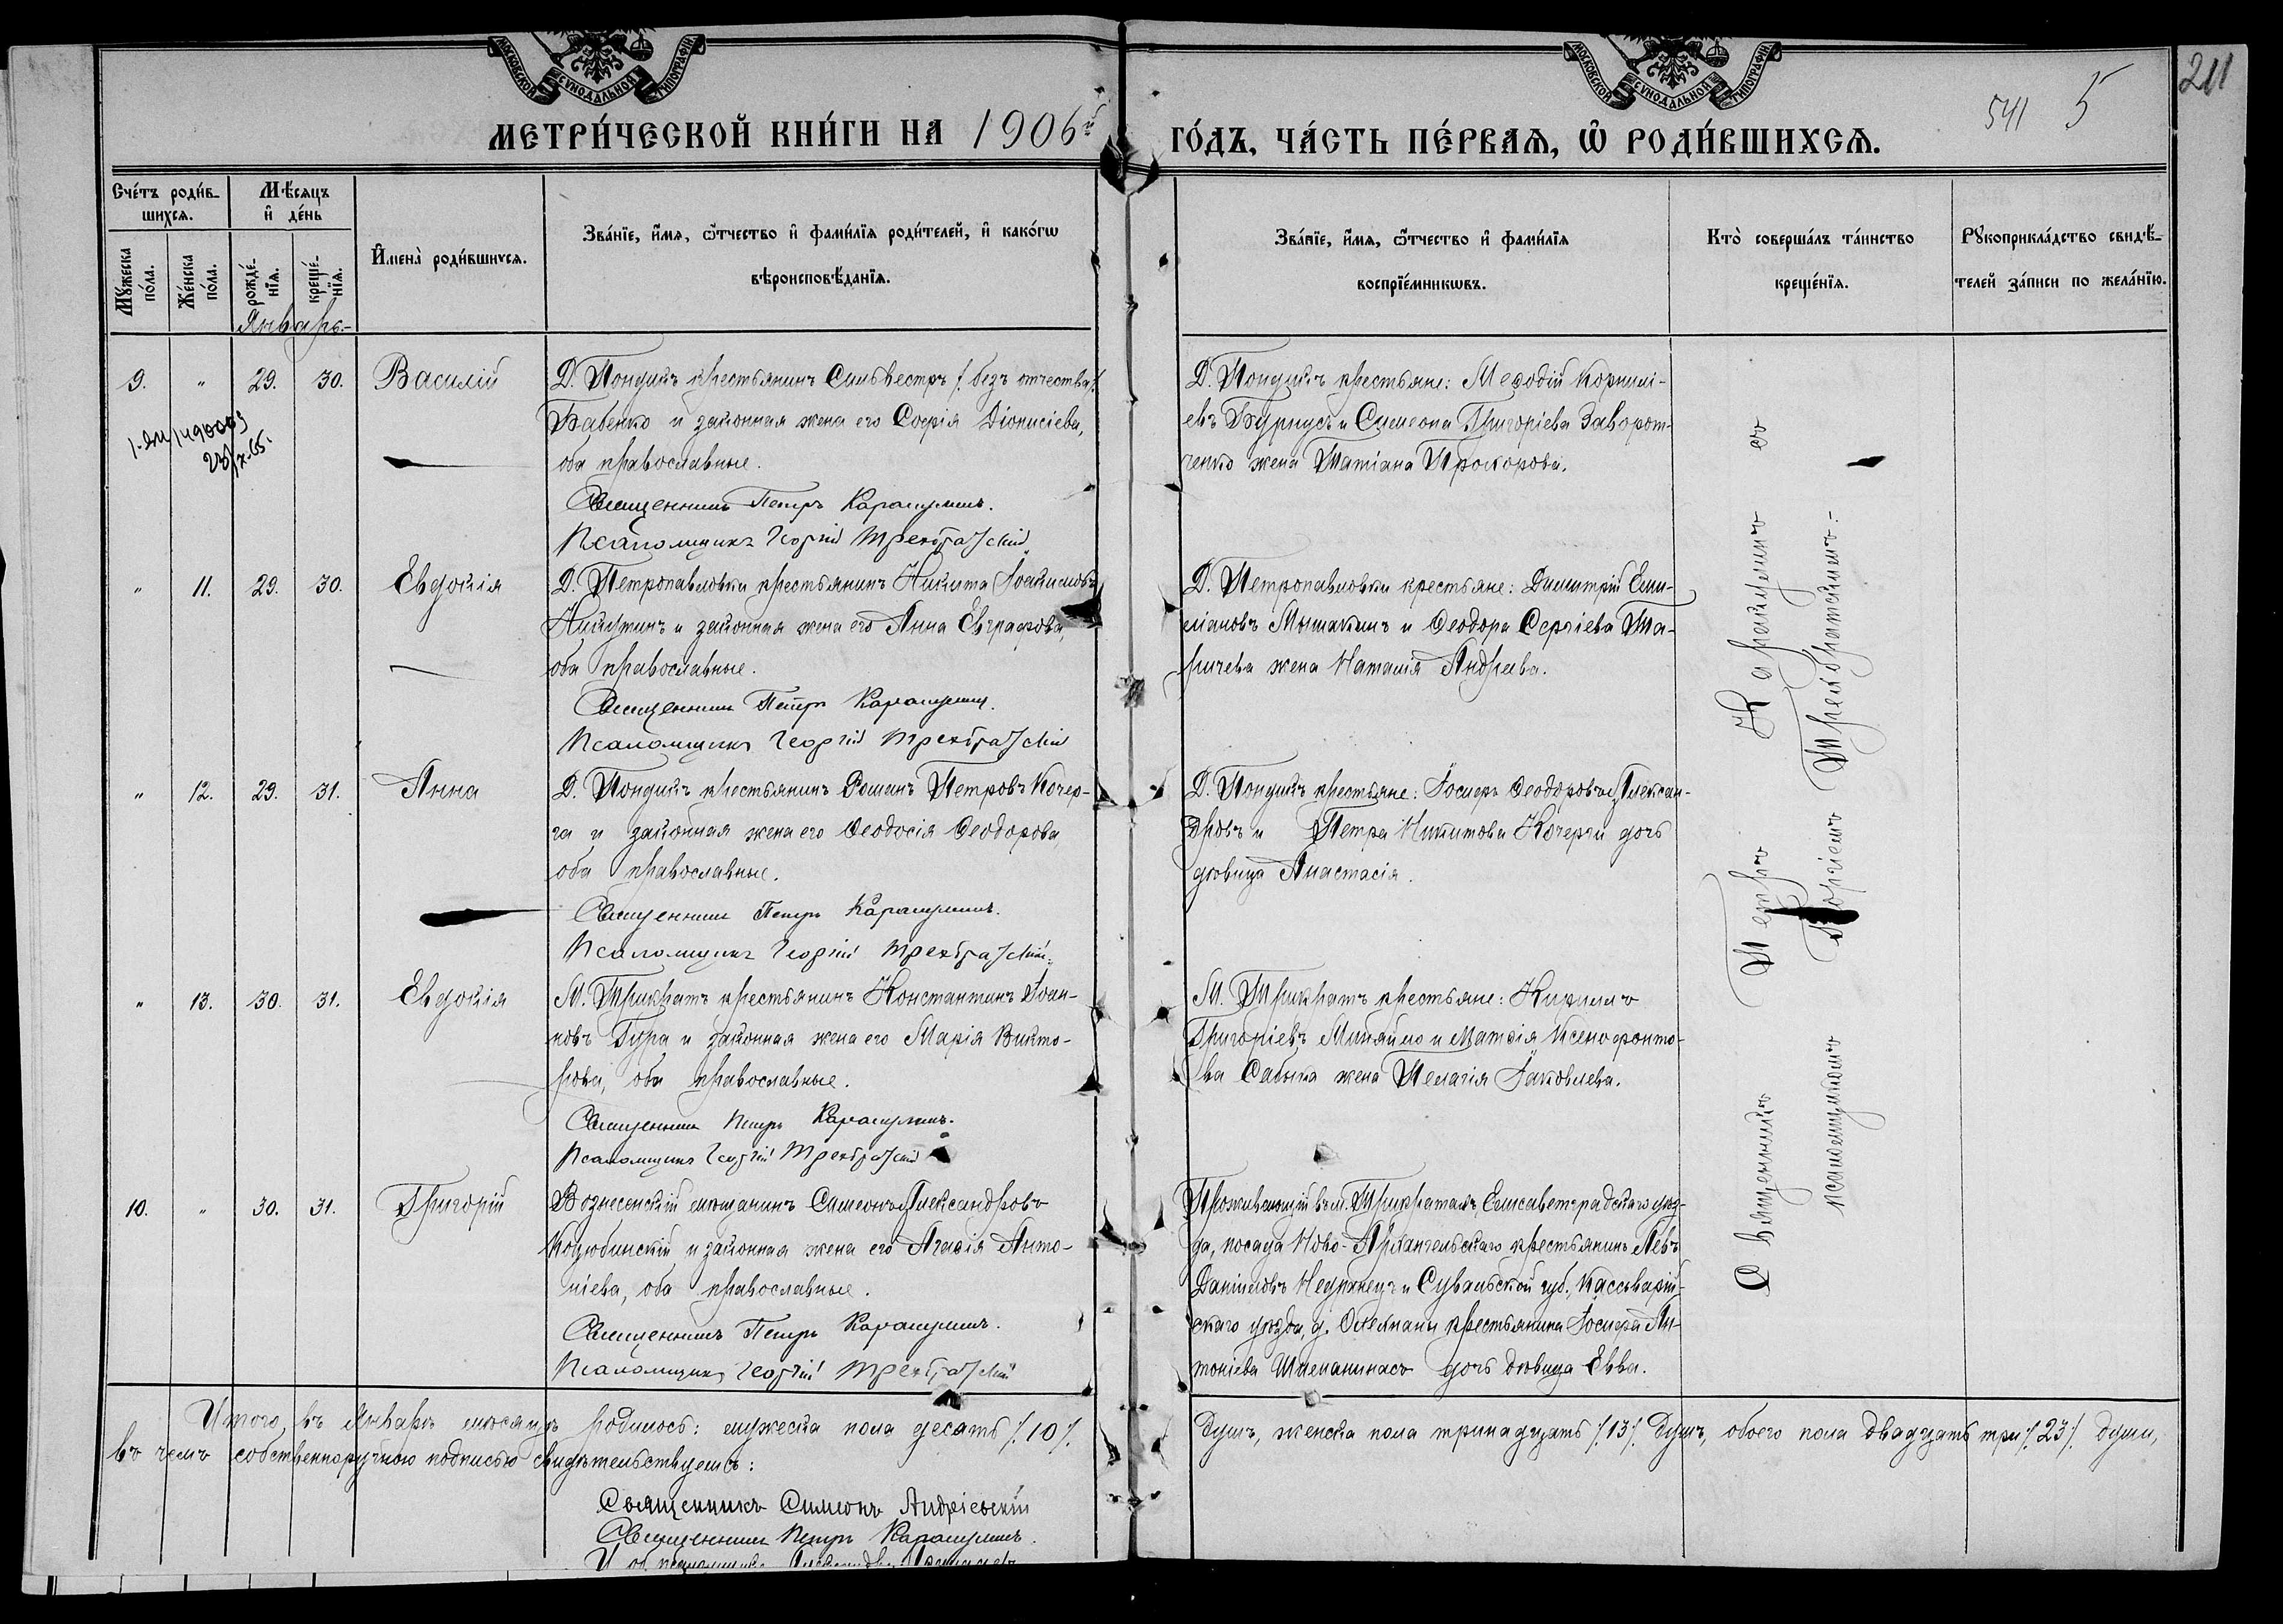 МОСКОВСКОЙ СѴНОДАЛЬНОЙ ТИПОГРАФІИ
МОСКОВСКОЙ СѴНОДАЛЬНОЙ ТИПОГРАФІИ
211
541 5
МЕТРИ́ЧЕСКОЙ КНИ́ГИ НА 1906й
ГО́ДЪ, ЧА́СТЬ ПЕ́РВАѦ, Ѡ҆ РОДИ́ВШИХСѦ.
Сче́тъ роди́в-
шихсѧ.
Мѣ́сѧцъ
и҆ де́нь
Мꙋжеска по́ла.
Же́нска по́ла.
рожде́-
нїѧ.
креще́-
нїѧ.
И҆мена̀ роди́вшихсѧ.
Зва́нїе, и҆́мѧ, ѻ҆́тчество и҆ фами́лїѧ роди́телей, и҆ како́гѡ
вѣроисповѣ́данїѧ.
Зва́нїе, и҆́мѧ, ѻ҆́тчество и҆ фами́лїѧ
воспрїе́мникѡвъ.
Кто̀ соверша́лъ та́инство
креще́нїѧ.
Рꙋкоприкла́дство свидѣ́-
телей за́писи по жела́нїю.
Январь.
9. " 29. 30. Василій
Д. Пондикъ крестьянинъ Сильвестръ /. безъ отчества /.
Бабенко и законная жена его Софія Діонисіева,
оба православные.
Священникъ Петръ Карашулинъ.
Псаломщикъ Георгій Трембратскій
Д. Пондикъ крестьяне: Меѳодій Корнилі-
евъ Бурнусъ и Симеона Григоріева Заворот-
ченко жена Татіана Прохорова.
" 11. 29. 30. Евдокія
Д. Петропавловки крестьянинъ Никита Іоакимовъ
Никутинъ и законная жена его Анна Евграфова,
оба православные.
Священникъ Петръ Карашулинъ.
Псаломщикъ Георгій Трембратскій
Д. Петропавловки крестьяне: Димитрій Еми-
ліановъ Мышакинъ и Ѳеодора Сергіева Та-
ричева жена Наталія Андреева.
" 12. 29. 31. Анна
Д. Пондикъ крестьянинъ Романъ Петровъ Кочер-
га и законная жена его Ѳеодосія Ѳеодорова
оба православные.
Священникъ Петръ Карашулинъ.
Псаломщикъ Георгій Трембратскій
Д. Пондикъ крестьяне: Іосифъ Ѳеодоровъ Алексан-
дровъ и Петра Никитова Кочерги дочь
дѣвица Анастасія.
" 13. 30. 31. Евдокія
М. Трикратъ крестьянинъ Константинъ Іоан-
новъ Гура и законная жена его Марія Викто-
рова, оба православные.
Священникъ Петръ Карашулинъ.
Псаломщикъ Георгій Трембратскій
М. Трикратъ крестьяне: Кириллъ
Григоріевъ Миняйло и Матѳія Ксенофонто-
ва Сабына жена Пелагія Іаковлева.
10. " 30. 31. Григорій
Вознесенскій мѣщанинъ Симеонъ Александровъ
Коцюбинскій и законная жена его Агаѳія Анто-
ніева, оба православные.
Священникъ Петръ Карашулинъ.
Псаломщикъ Георгій Трембратскій
Проживающій въ м. Трикратахъ, Елисаветградскаго уѣз-
да, посада Ново-Архангельскаго крестьянинъ Левъ
Даніиловъ Недѣлнецъ и Сувалкской губ.,
скаго уѣзда, д. крестьянина Іосифа Ан-
тоніева дочь дѣвица Евва.
Священникъ Петръ Карашулинъ съ
псаломщикомъ Георгіемъ Трембратскимъ.
Итого въ Январѣ мѣсяцѣ родилось: мужеска пола десять /.10/.
душъ, женска пола тринадцать /.13/. душъ, обоего пола двадцать три /.23/. души,
въ чемъ собственноручною подписью свидѣтельствуемъ:
Священникъ Симеонъ Андріевскій
Священникъ Петръ Карашулинъ.